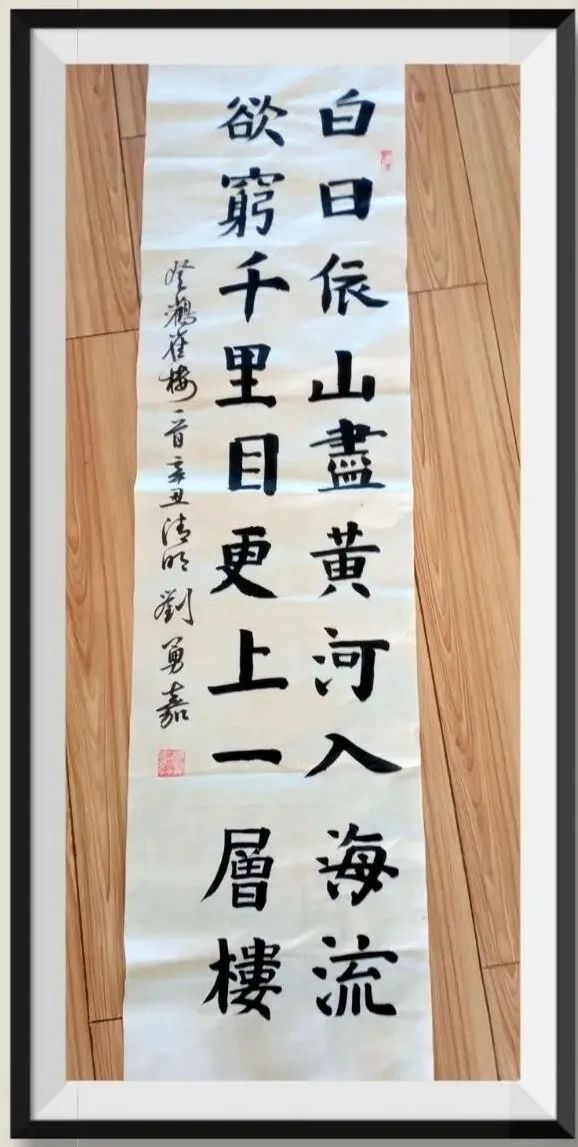 白日依山盡黃河入海流
欲窮千里目更上一層樓
登鸛雀樓一首辛丑清明劉勇嘉